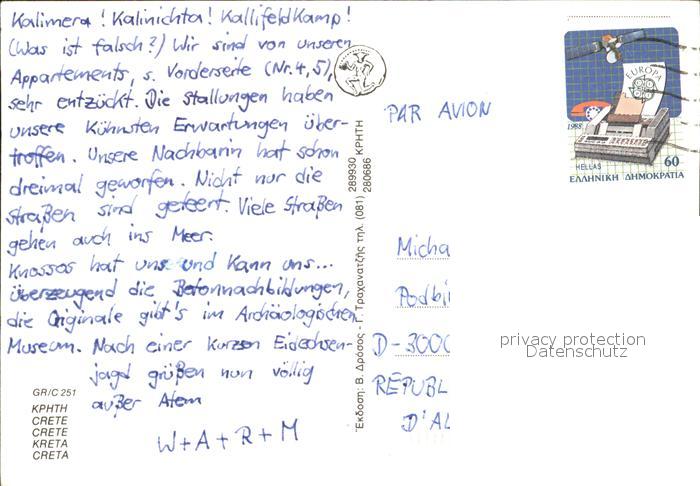 Kalimera! Kalinichta! Kallifeldkamp!
(Was ist falsch?) Wir sind von unseren
Appartements, s. Vorderseite (Nr. 4, 5),
sehr entzückt. Die Stallungen haben
unsere kühnsten Erwartungen über-
troffen. Unsere Nachbarin hat schon
dreimal geworfen. Nicht nur die
Straßen sind geteert. Viele Straßen
gehen auch ins Meer.
Knossos hat uns und kann uns...
überzeugend die Betonnachbildungen,
die Originale gibt's im Archäologischen
Museum. Nach einer kurzen Eidechsen-
jagd grüßen nun völlig
außer Atem
W+A+R+M
GR/C 251
ΚΡΗΤΗ
CRETE
CRETE
KRETA
CRETA
Έκδοση: Β. Δρόσος - Γ. Τραχανατζής τηλ. (081) 289930 ΚΡΗΤΗ
280686
PAR AVION
EUROPA
1988
HELLAS 60
ΕΛΛΗΝΙΚΗ ΔΗΜΟΚΡΑΤΙΑ
Micha
Podbi
D-3000
RÉPUBL
D'AL
privacy protection
Datenschutz